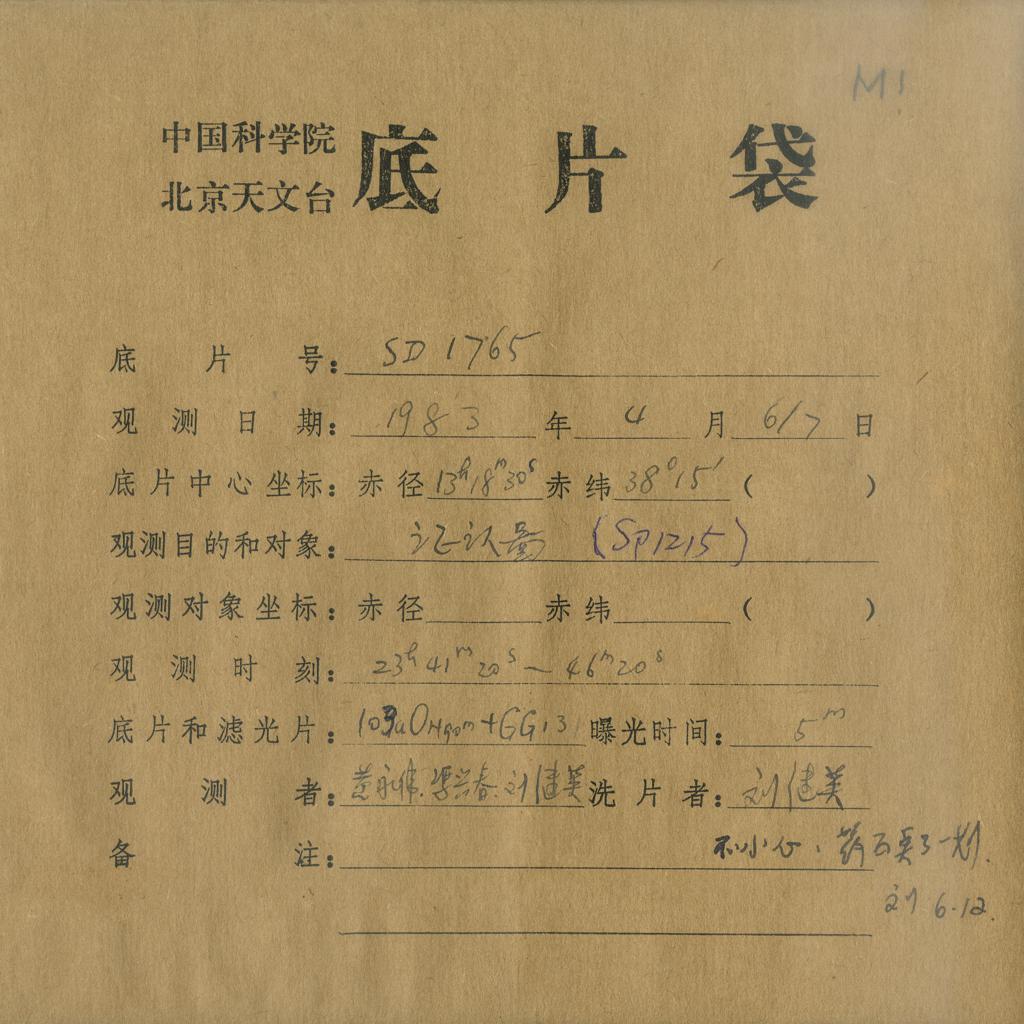 M1
中国科学院
北京天文台 底片袋
底片号: SD 1765
观测日期: 1983 年 4 月 6/7 日
底片中心坐标: 赤径 13h18m30s 赤纬 38°15′ ( )
观测目的和对象: 证认图 (SP1215)
观测对象坐标: 赤径 赤纬 ( )
观测时刻: 23h41m20s—46m20s
底片和滤光片: +GG13 曝光时间: 5m
观测者: 刘健美 洗片者: 刘健美
备注: 不小心,
刘 6.12.